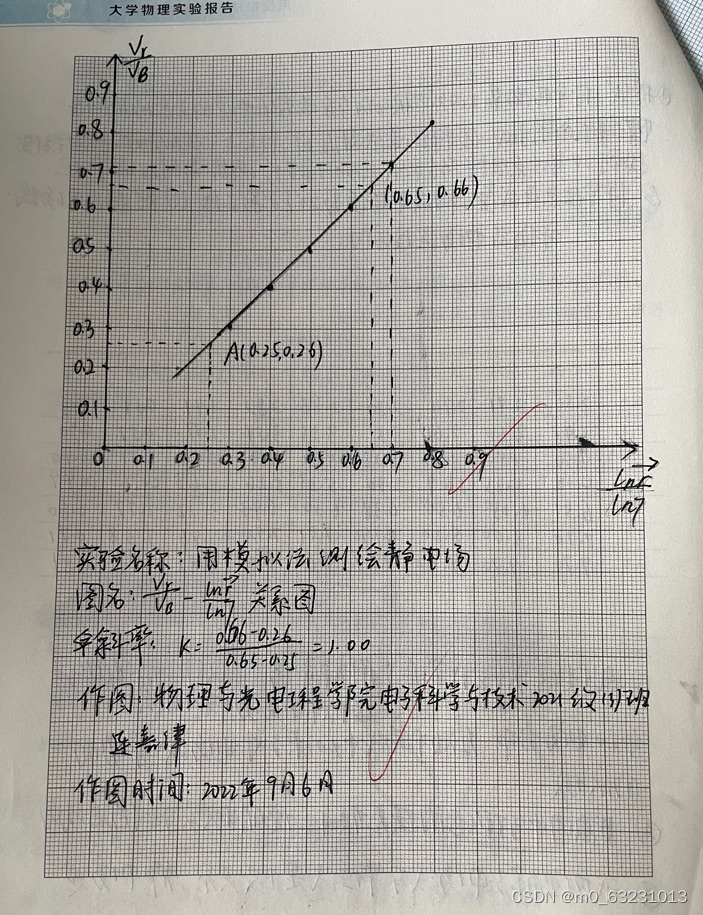 大学物理实验报告
Vr
VB
0.9
0.8
0.7
0.6
(0.65, 0.66)
0.5
0.4
0.3
A(0.25,0.26)
0.2
0.1
0 0.1 0.2 0.3 0.4 0.5 0.6 0.7 0.8 0.9
ln r
ln
实验名称:用模拟法测绘静电场
图名: Vr/VB - ln r/ln 关系图
斜率: K= 0.66-0.26 / 0.65-0.25 = 1.00
作图:物理与光电工程学院电子科学与技术2021级(3)班
连嘉律
作图时间:2022年9月6日
CSDN @m0_63231013